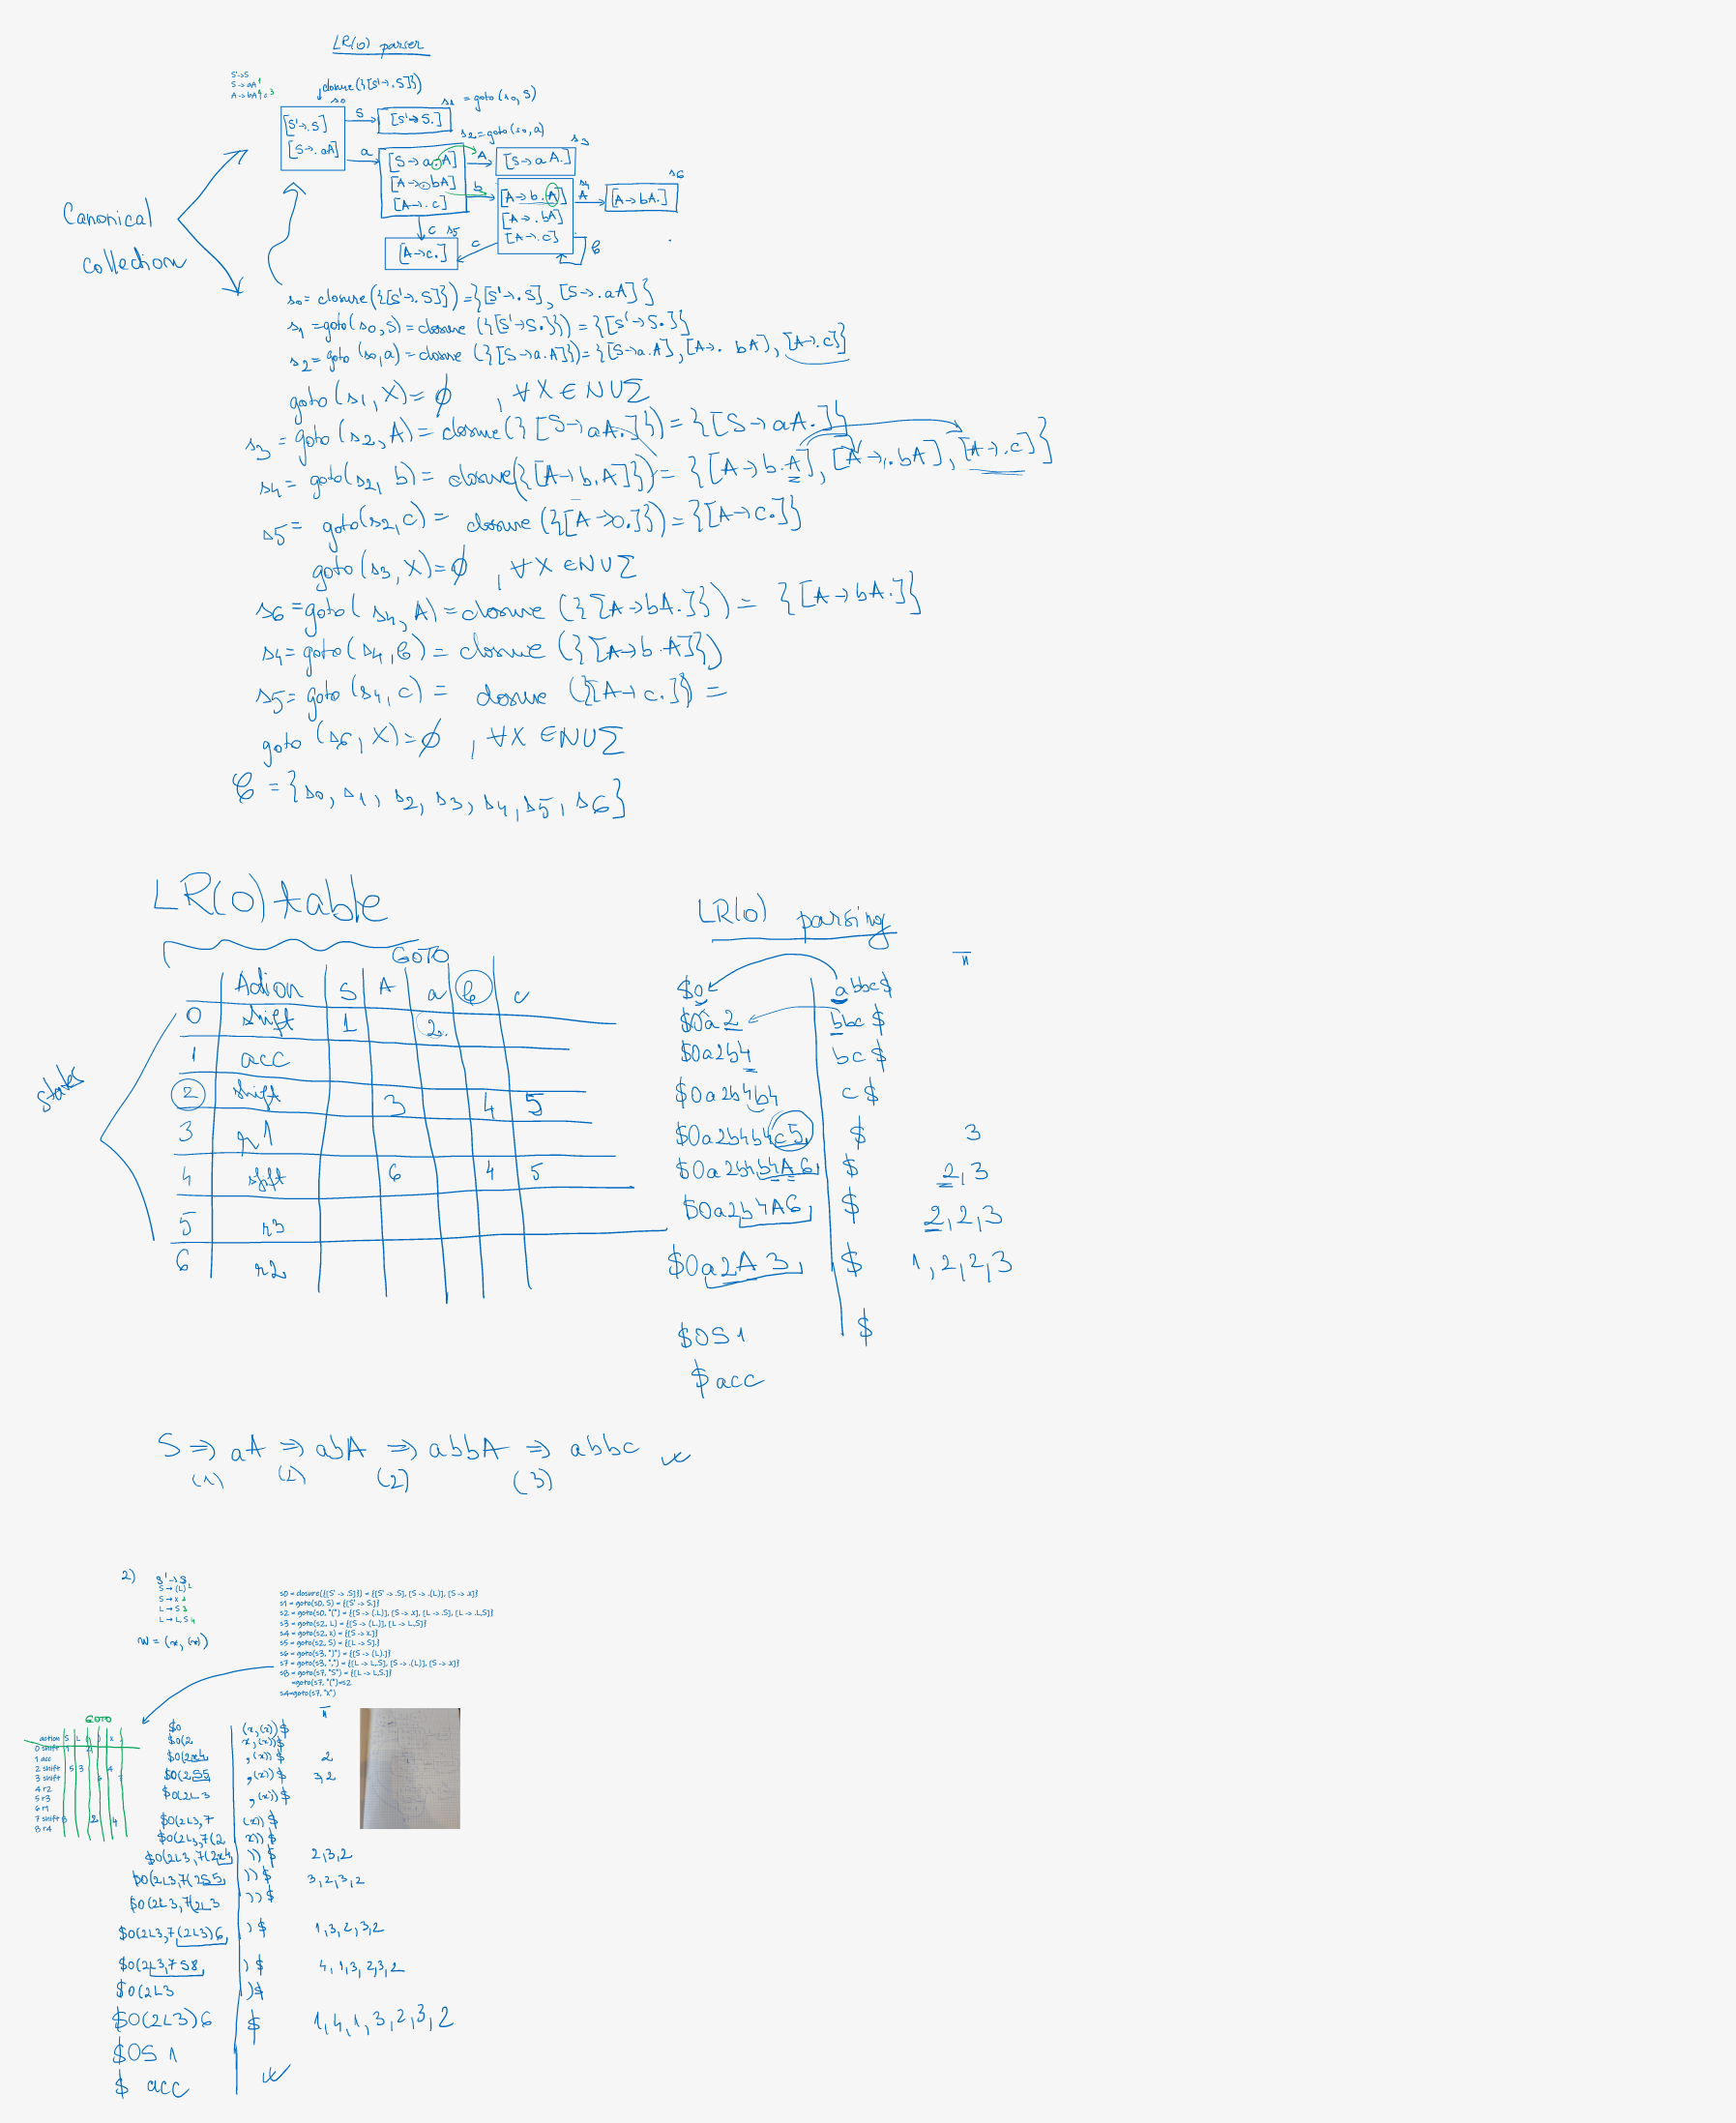 LR(0) parser
S'→S
S→aA 1
A→bA 2|c 3
closure({[S'→.S]})
s0
[S'→.S]
[S→.aA]
S
s1 = goto(s0, S)
[S'→S.]
a
s2=goto(s0,a)
[S→a.A]
[A→.bA]
[A→.c]
A
s3
[S→aA.]
b
s4
[A→b.A]
[A→.bA]
[A→.c]
A
s6
[A→bA.]
c s5
[A→c.]
c
b
Canonical
collection
s0= closure({[S'→.S]})={[S'→.S], [S→.aA]}
s1=goto(s0,S)=closure({[S'→S.]})={[S'→S.]}
s2=goto(s0,a)=closure({[S→a.A]})={[S→a.A],[A→.bA],[A→.c]}
goto(s1,X)=ϕ , ∀X∈NUΣ
s3=goto(s2,A)=closure({[S→aA.]})={[S→aA.]}
s4=goto(s2,b)=closure({[A→b.A]})={[A→b.A],[A→.bA],[A→.c]}
s5= goto(s2,c)= closure({[A→c.]})={[A→c.]}
goto(s3,X)=ϕ , ∀X∈NUΣ
s6=goto(s4,A)=closure({[A→bA.]})= {[A→bA.]}
s4=goto(s4,b)= closure({[A→b.A]})
s5=goto(s4,c)= closure({[A→c.]})=
goto(s6,X)=ϕ , ∀X∈NUΣ
C={s0,s1,s2,s3,s4,s5,s6}
LR(0) table
GOTO
Action S A a b c
0 shift 1 2
1 acc
2 shift 3 4 5
3 r1
4 shift 6 4 5
5 r3
6 r2
states
LR(0) parsing
π
$0 abbc$
$0a2 bbc$
$0a2b4 bc$
$0a2b4b4 c$
$0a2b4b4c5 $ 3
$0a2b4b4A6 $ 2,3
$0a2b4A6 $ 2,2,3
$0a2A3 $ 1,2,2,3
$0S1 $
$acc
S ⇒ aA ⇒ abA ⇒ abbA ⇒ abbc
(1) (2) (2) (3)
2) S'→S
S→(L) 1
S→x 2
L→S 3
L→L,S 4
w=(x,(x))
s0 = closure({[S' -> .S]}) = {[S' -> .S], [S -> .(L)], [S -> .x]}
s1 = goto(s0, S) = {[S' -> S.]}
s2 = goto(s0, "(") = {[S -> (.L)], [S -> .x], [L -> .S], [L -> .L,S]}
s3 = goto(s2, L) = {[S -> (L.)], [L -> L.,S]}
s4 = goto(s2, x) = {[S -> x.]}
s5 = goto(s2, S) = {[L -> S].}
s6 = goto(s3, ")") = {[S -> (L).]}
s7 = goto(s3, ",") = {[L -> L,.S], [S -> .(L)], [S -> .x]}
s8 = goto(s7, "S") = {[L -> L,S.]}
=goto(s7, "(")=s2
s4=goto(s7, "x")
GOTO
action S L ( ) x ,
0 shift 1
1 acc
2 shift 5 3 4
3 shift
4 r2
5 r3
6 r1
7 shift 8 2 4
8 r4
π
$0 (x,(x))$
$0(2 x,(x))$
$0(2x4 ,(x))$ 2
$0(2S5 ,(x))$ 3,2
$0(2L3 ,(x))$
$0(2L3,7 (x))$
$0(2L3,7(2 x))$
$0(2L3,7(2x4 ))$ 2,3,2
$0(2L3,7(2S5 ))$ 3,2,3,2
$0(2L3,7(2L3 ))$
$0(2L3,7(2L3)6 )$ 1,3,2,3,2
$0(2L3,7S8 )$ 4,1,3,2,3,2
$0(2L3 )$
$0(2L3)6 $ 1,4,1,3,2,3,2
$0S1
$ acc